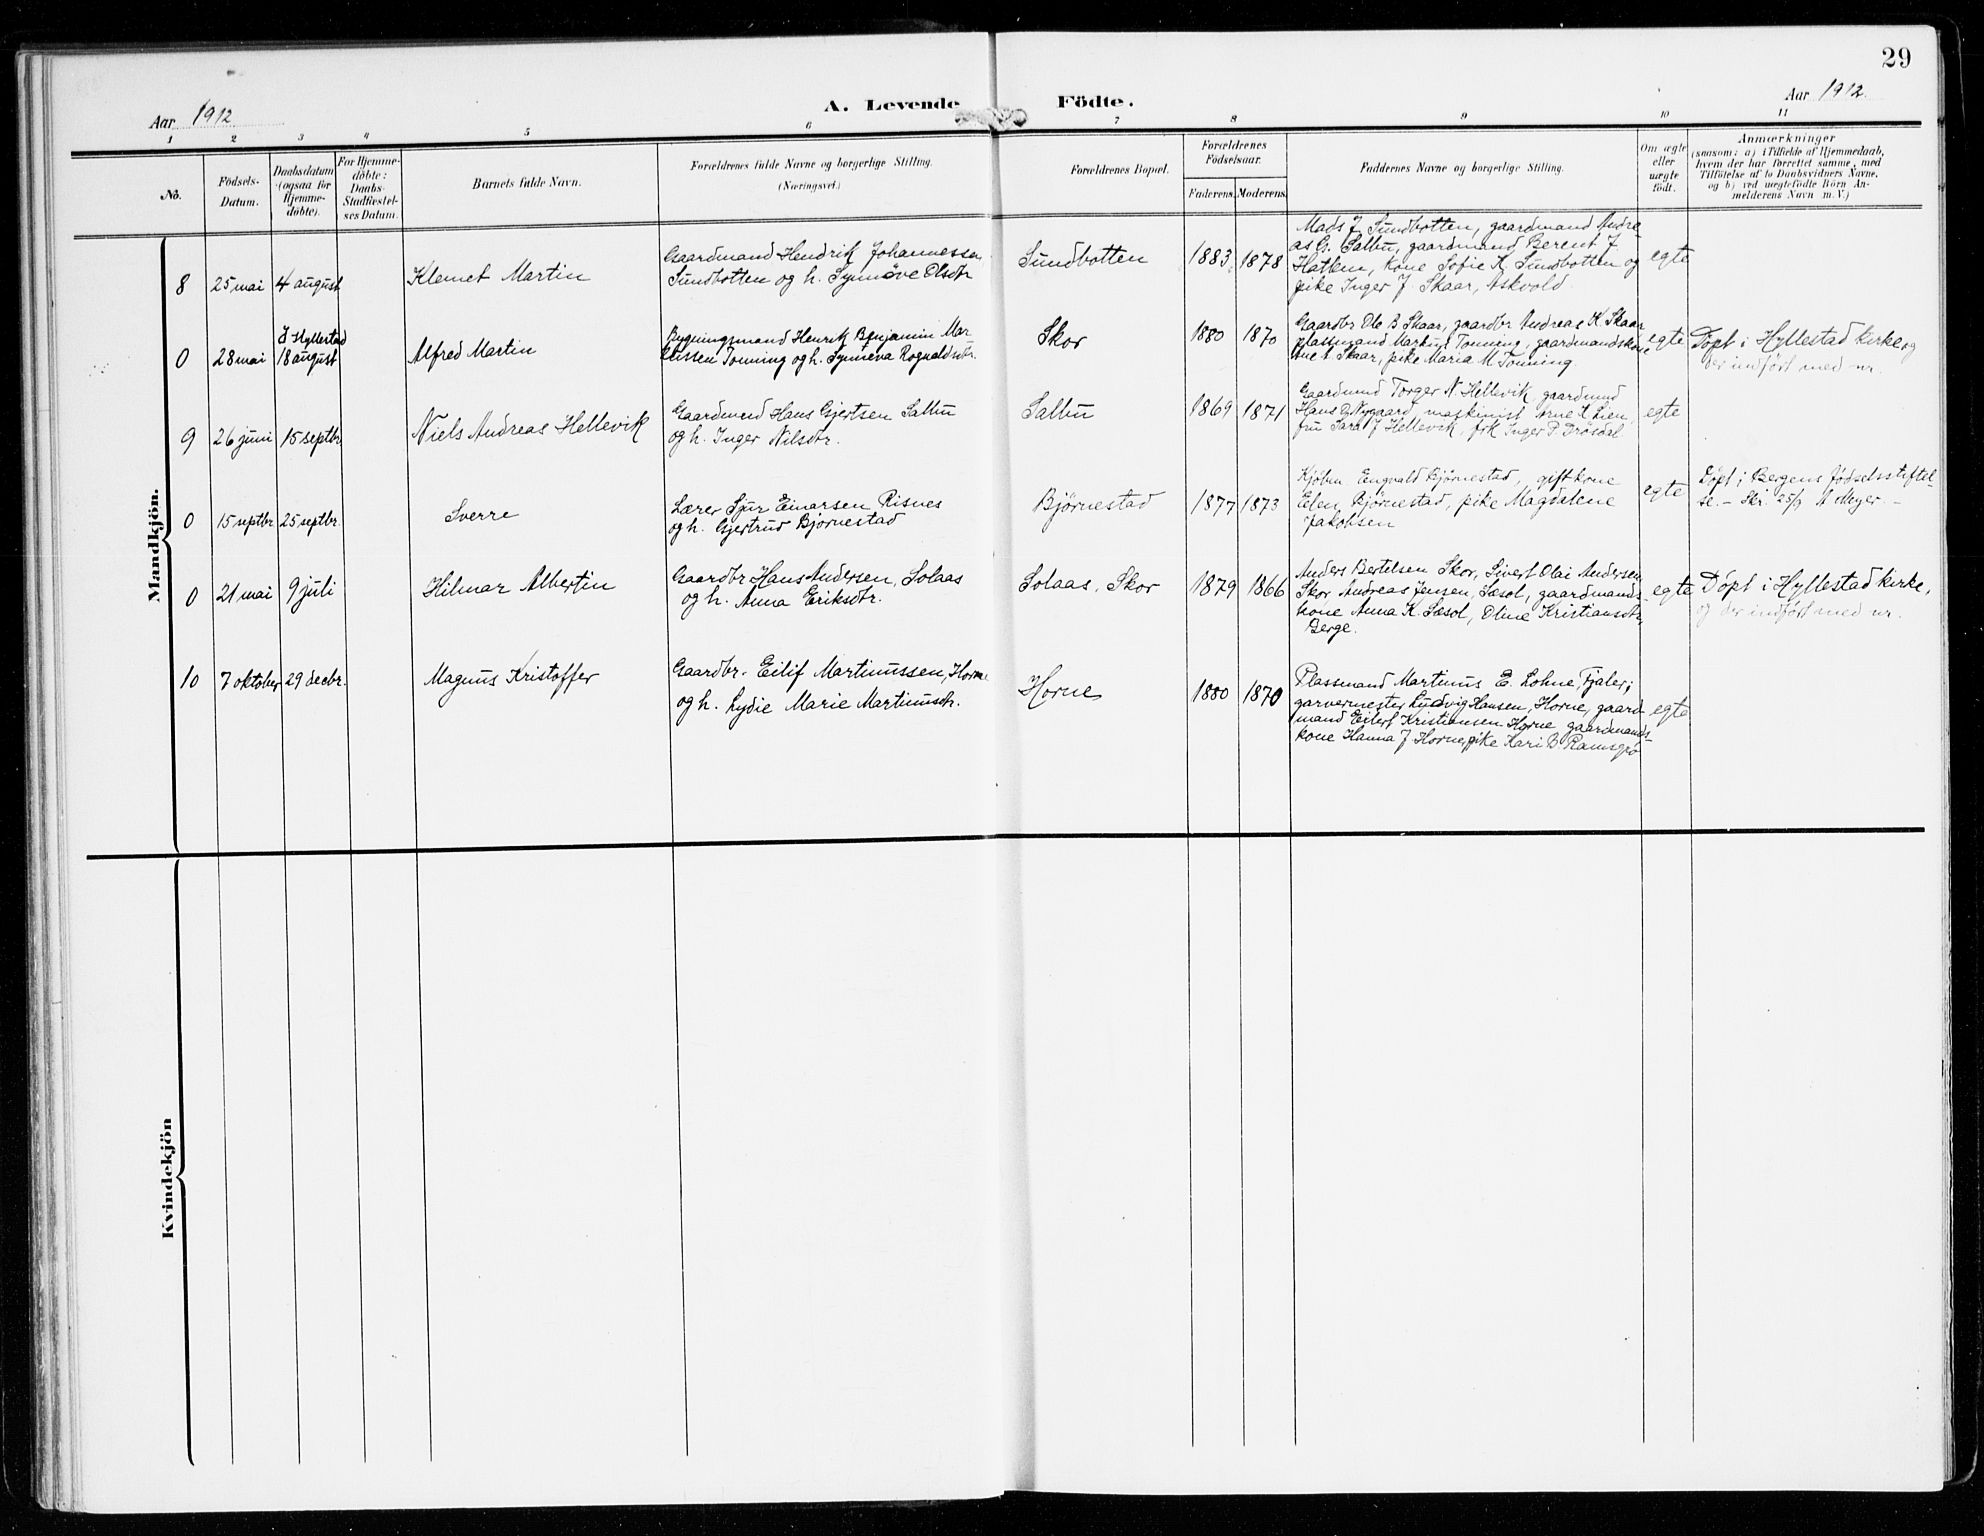 29
Aar 1912
A. Levende Födte.
Aar 1912.
1 2 3 4 5 6 7 8 9 10 11
No.
Födsels-
Datum.
Daabsdatum
(ogsaa for
Hjemme-
døbte).
For Hjemme-
döbte:
Daabs-
Stadfæstel-
ses Datum.
Barnets fulde Navn.
Forældrenes fulde Navne og borgerlige Stilling.
(Næringsvei.)
Forældrenes Bopæl.
Forældrenes
Födselsaar.
Faderens. Moderens.
Faddernes Navne og borgerlige Stilling.
Om ægte
eller
uægte
födt.
Anmærkninger
(saasom: a) i Tilfælde af Hjemmedaab,
hvem der har forrettet samme, med
Tilföielse af to Daabsvidners Navne,
og b) ved uægtefödte Börn An-
melderens Navn m. V.)
Mandkjön.
8
25 mai
4 august
Klemet Martin
Gaardmand Hendrik Johannessen
Sundbotten og h. Synnøve Olsdtr
Sundbotten
1883
1878
Mads J. Sundbotten, gaardmand Andre-
as G. Salbu, gaardmand Berent J.
Hatlem, kone Sofie K. Sundbotten og
pike Inger J. Skaar, Askvold.
egte
0
28 mai
I Hyllestad
18 august
Alfred Martin
Bygningsmand Henrik Benjamin Mar-
Tonning og h. Synneva Rognaldsdtr.
Skor
1880
1870
Gaardbr Ole B Skaar, gaardbr Andreas K. Skaar
plassmand Markus Tonning, gaardmandskone
Skaar, pike Maria M Tonning
egte
Døpt i Hyllestad kirke og
der indført med nr.
9
26 juni
15 septbr
Niels Andreas Hellevik
Gaardmand Hans Gjertsen Salbu
og h. Inger Nilsdtr.
Salbu
1869
1871
Gaardmand Torger N. Hellevik, gaardmand
Hans Nygaard, maskinist Arne K. Lien,
fru Sara J Hellevik, frk Inger P. Drøsdal.
egte
0
15 septbr
25 septbr.
Sverre
Lærer Sjur Einarsen Risnes
og h. Gjertrud Bjørnestad
Bjørnestad
1877
1873
Kjøbm Engvald Bjørnestad, gift kone
Elen Bjørnestad, pike Magdalene
Jakobsen
egte
Døpt i Bergens fødselsstiftel
se. - Skr. 25/9 A Meyer. -
0
21 mai
9 juli
Hilmar Albertin
Gaardbr Hans Andersen, Solaas
og h. Anna Eriksdtr.
Solaas, Skor
1879
1866
Anders Bertelsen Skor, Sivert Olai Andersen
Skor Andreas Jensen, Sæsol, gaardmands-
kone Anna K. Sæsol, Oline Kristiansdtr,
Berge.
egte
Døpt i Hyllestad kirke,
og der indført med nr.
10
7 oktober
29 decbr.
Magnus Kristoffer
Gaardbr. Eilif Martinussen, Horne
og h. Lydie Marie Martinusdtr.
Horne
1880
1870
Plassmand Martinus E. Lohne, Fjaler;
garvermester Ludvig Hansen, Horne, gaard
mand Eilert Kristiansen Horne gaardmands-
kone Hanna J. Horne, pike Kari B. Ramsgrø
egte
Kvindekjön